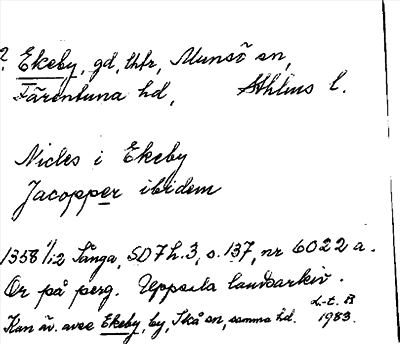 ? Ekeby, gd, thfr, Munsö sn,
Färentuna hd, Sthlms l.
Nicles i Ekeby
Jacopper ibidem
1358 1/12 Sånga, SD 7 h. 3, s. 137, nr 6022 a.
Or på perg. Uppsala landsarkiv.
Kan äv. avse Ekeby, by, Skå sn, samma hd. L-t. B
1983.